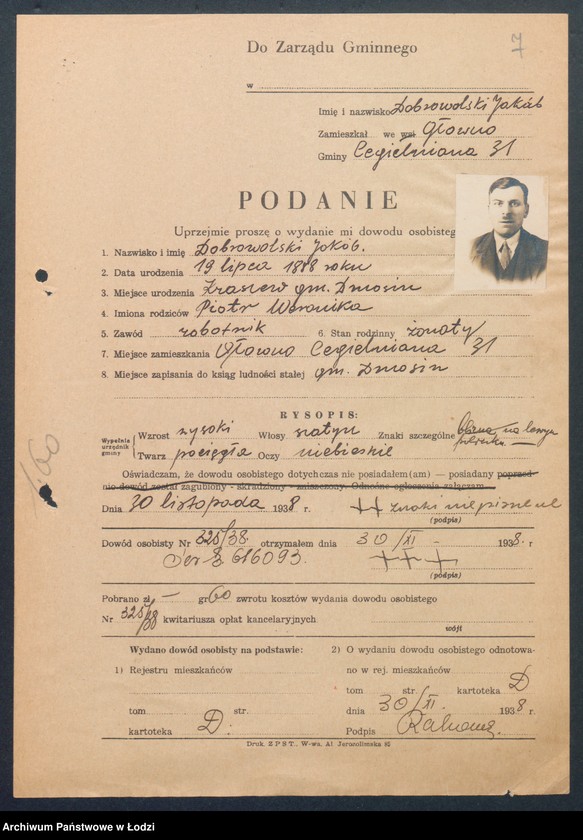 7
Do Zarządu Gminnego
w
Imię i nazwisko Dobrowolski Jakób
Zamieszkał we wsi Głowno
Gminy Cegielniana 31
PODANIE
Uprzejmie proszę o wydanie mi dowodu osobisteg
1. Nazwisko i imię Dobrowolski Jakób.
2. Data urodzenia 19 lipca 1888 roku
3. Miejsce urodzenia gm. Dmosin
4. Imiona rodziców Piotr Weronika
5. Zawód robotnik 6. Stan rodzinny żonaty
7. Miejsce zamieszkania Głowno Cegielniana 31
8. Miejsce zapisania do ksiąg ludności stałej gm. Dmosin
RYSOPIS:
Wypełnia urzędnik gminy
Wzrost wysoki Włosy szatyn Znaki szczególne blizna na lewym policzku
Twarz pociągła Oczy niebieskie
Oświadczam, że dowodu osobistego dotychczas nie posiadałem(am) — posiadany poprzed-
nio dowód został zagubiony - skradziony - zniszczony. Odnośne ogłoszenia załączam.
Dnia 30 listopada 1938 r. +++ znaki niepiśmienne
(podpis)
Dowód osobisty Nr 325/38 otrzymałem dnia 30/XI - 1938 r.
Ser E 616093. +++
(podpis)
Pobrano zł — gr 60 zwrotu kosztów wydania dowodu osobistego
Nr 325/38 kwitariusza opłat kancelaryjnych
wójt
Wydano dowód osobisty na podstawie:
1) Rejestru mieszkańców
tom str.
kartoteka D.
2) O wydaniu dowodu osobistego odnotowa-
no w rej. mieszkańców
tom str. kartoteka D
dnia 30/XI. 1938 r.
Podpis
Druk. Z P S T., W-wa, Al Jerozolimska 91
1.60
Archiwum Państwowe w Łodzi